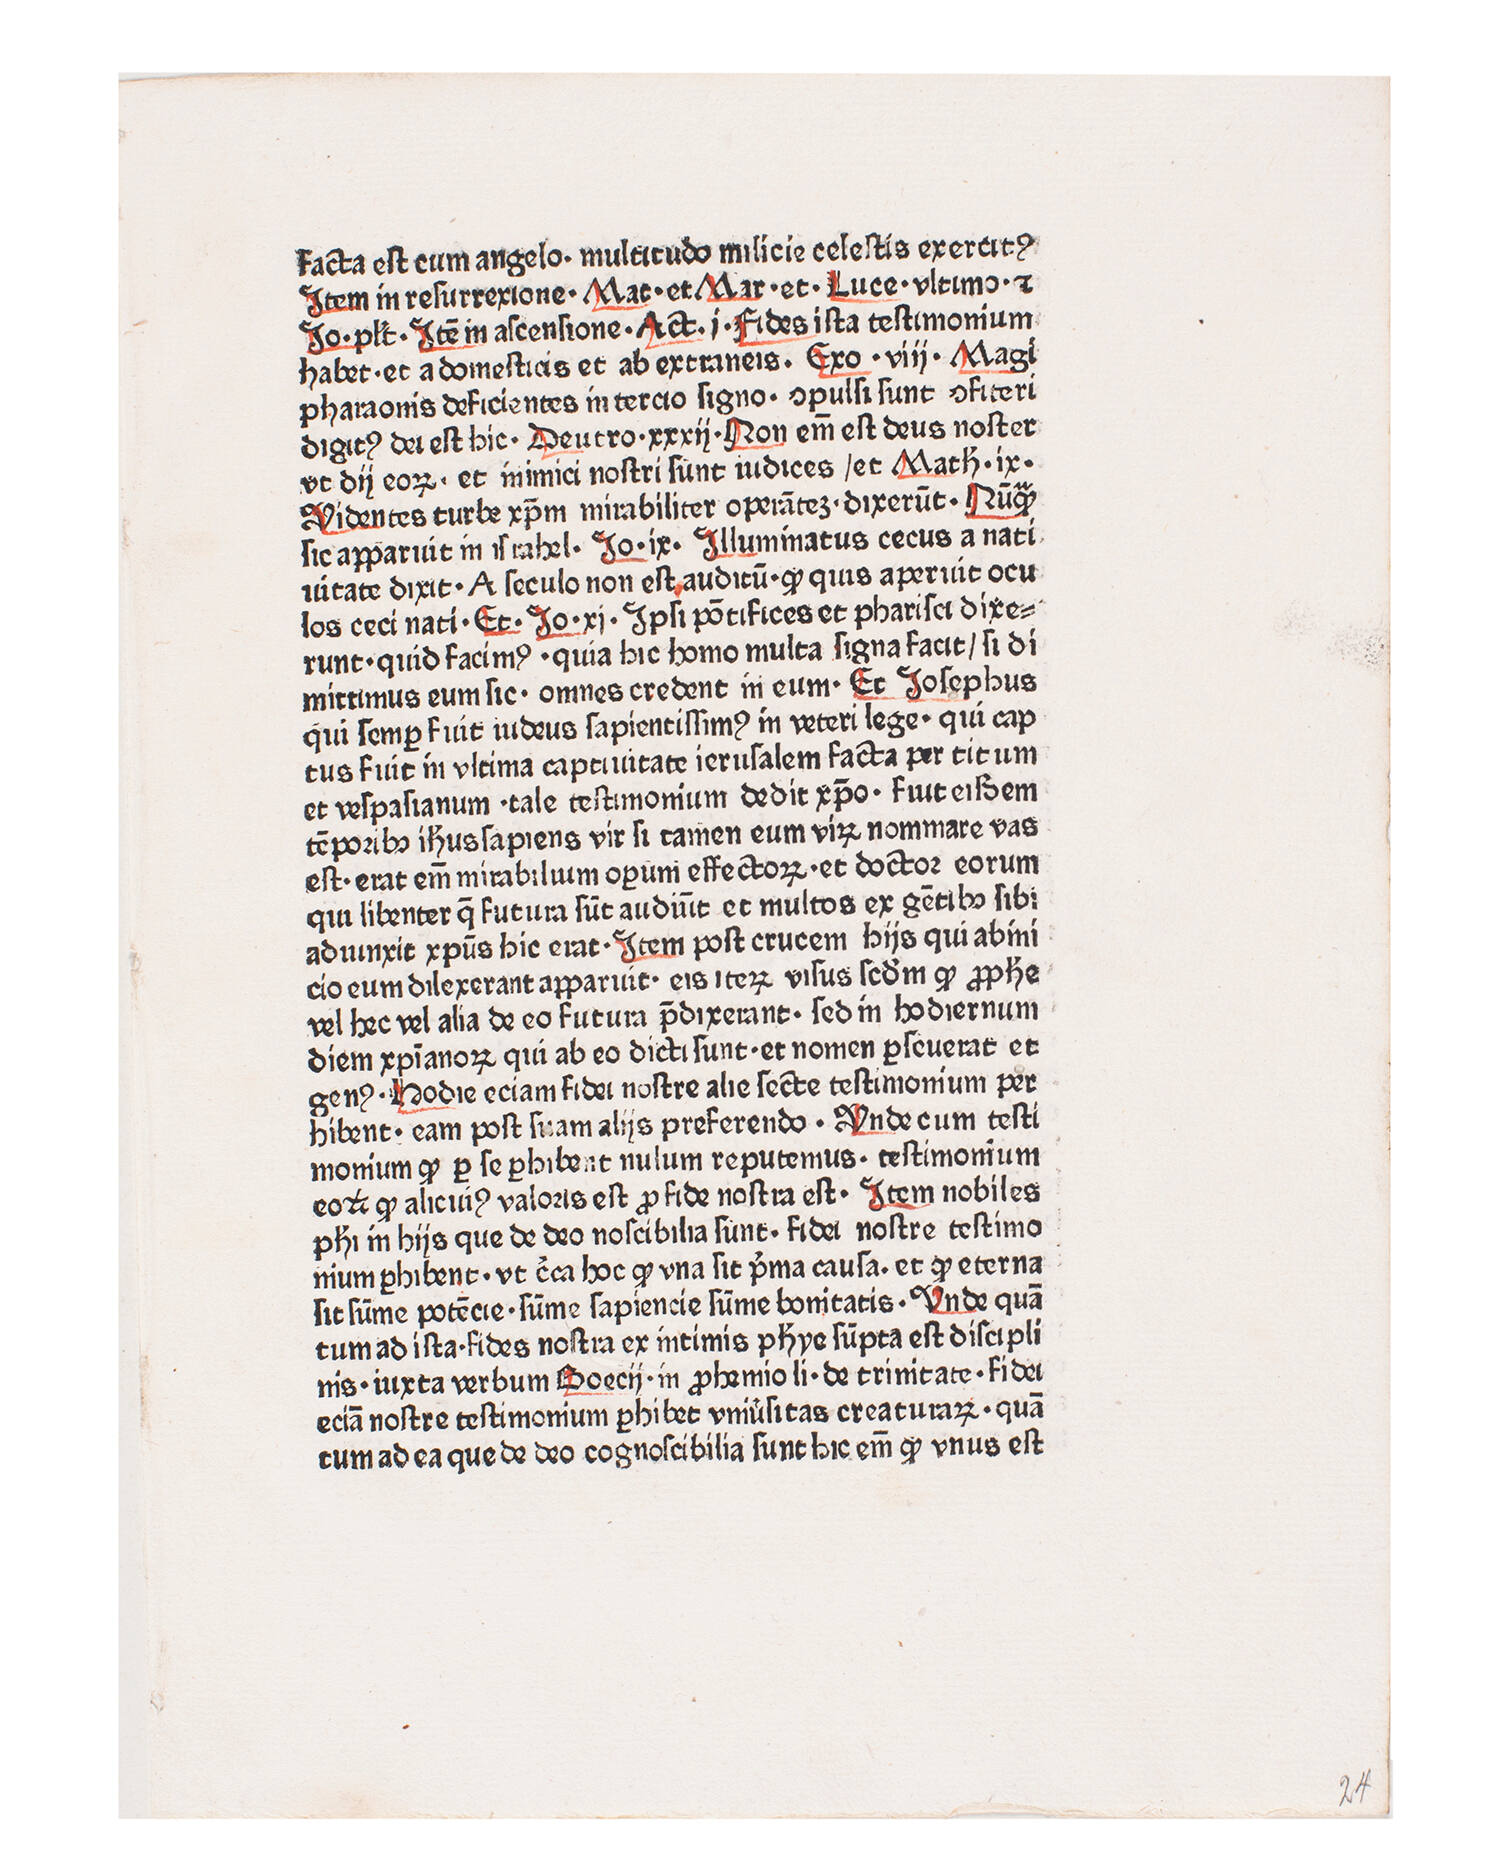 Facta est cum angelo· multitudo milicie celestis exercitꝰ
Item in resurrexione· Mat·et Mar·et· Luce·vltimo·⁊
Jo·plt̄· Itē in ascensione·Act·i·Fides ista testimonium
habet·et a domesticis et ab extraneis· Exo ·viij· Magi
pharaonis deficientes in tercio signo· ↄpulsi sunt ↄfiteri
digitꝰ dei est hic· Deutro·xxxij·Non em̄ est deus noster
vt dij eoꝝ· et inimici nostri sunt iudices /et Math̄·ix·
Videntes turbe xp̄m mirabiliter operātez·dixerūt· Nūꝙ
sic apparuit in israhel· Jo·ix· Illuminatus cecus a nati
uitate dixit·A seculo non est auditū·ꝙ quis aperuit ocu
los ceci nati·Et·Jo·xj·Ipsi pōtifices et pharisei dixe=
runt·quid facimꝰ ·quia hic homo multa signa facit/si di
mittimus eum sic· omnes credent in eum·Et Josephus
qui semꝑ fuit iudeus sapientissimꝰ in veteri lege· qui cap
tus fuit in vltima captiuitate ierusalem facta per titum
et vespasianum ·tale testimonium dedit xp̄o· fuit eisdem
tēporibꝰ ih̄us sapiens vir si tamen eum viꝝ nominare vas
est·erat em̄ mirabilium oꝑum effectoꝝ·et doctor eorum
qui libenter q̄ futura sūt audiūt et multos ex gētibꝰ sibi
adiunxit xp̄us hic erat·Item post crucem hijs qui ab ini
cio eum dilexerant apparuit· eis iteꝝ visus scd̄m ꝙ ꝓph̄e
vel hec vel alia de eo futura p̄dixerant· sed in hodiernum
diem xp̄ianoꝝ qui ab eo dicti sunt·et nomen ꝑseuerat et
genꝰ·Hodie eciam fidei nostre alie secte testimonium per
hibent· eam post suam alijs preferendo ·Vnde cum testi
monium ꝙ ꝑ se ꝑhibent nulum reputemus· testimonium
eoꝝ ꝙ alicuiꝰ valoris est ꝓ fide nostra est· Item nobiles
ph̄i in hijs que de deo noscibilia sunt· fidei nostre testimo
nium ꝑhibent·vt c̄ca hoc ꝙ vna sit p̄ma causa· et ꝙ eterna
sit sūme potēcie·sūme sapiencie sūme bonitatis·Vnde quā
tum ad ista·fides nostra ex intimis ph̄ye sūpta est discipli
nis·iuxta verbum Boecij·in ꝓhemio li·de trinitate·fidei
eciā nostre testimonium ꝑhibet vniu̾sitas creaturaꝝ·quā
tum ad ea que de deo cognoscibilia sunt hic em̄ ꝙ vnus est
24